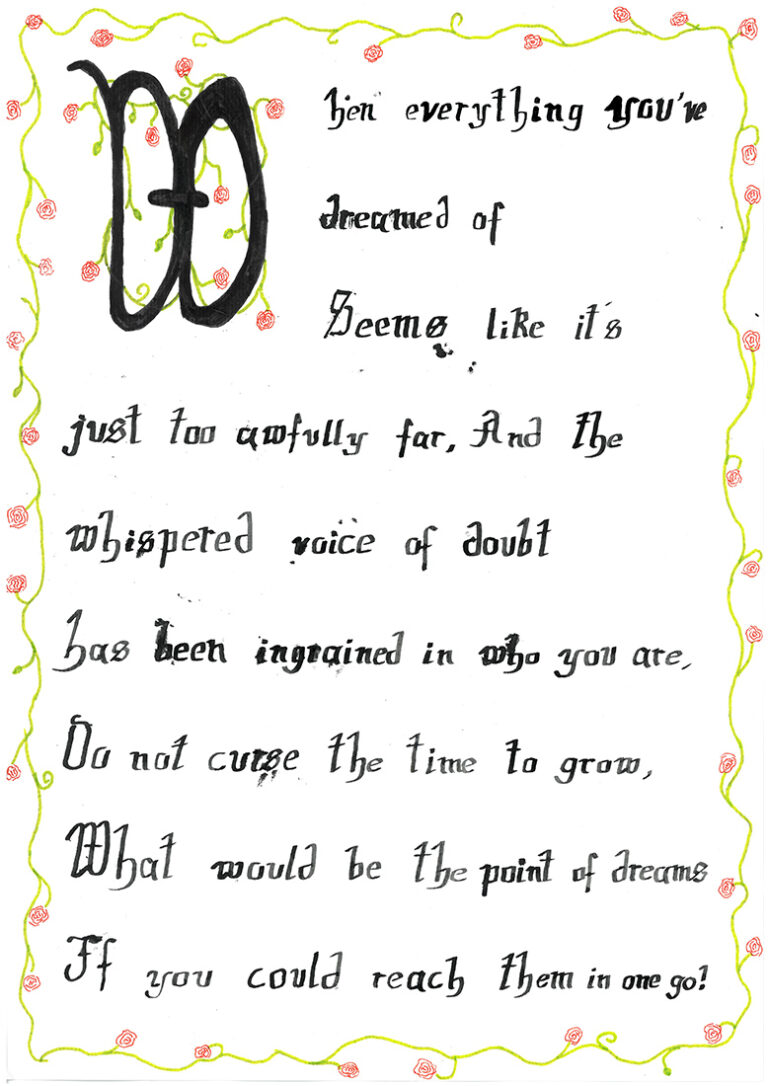 When everything you've
dreamed of
Seems like it's
just too awfully far, And the
whispered voice of doubt
has been ingrained in who you are,
Do not curse the time to grow,
What would be the point of dreams
If you could reach them in one go!